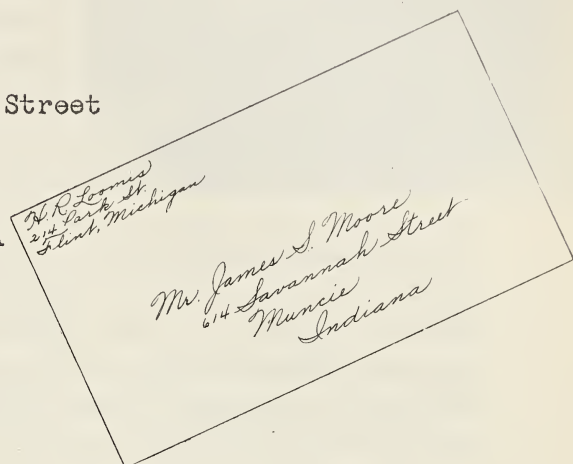 Street
H. R. Loomis
214 Park St.
Flint, Michigan
Mr. James S. Moore
614 Savannah Street
Muncie
Indiana